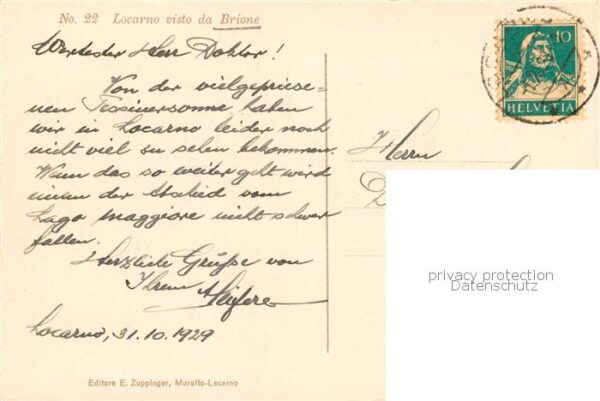 No. 22 Locarno visto da Brione
Wertester Herr Doktor!
Von der vielgepriese-
nen Tessinersonne haben
wir in Locarno leider noch
nicht viel zu sehen bekommen.
Wenn das so weiter geht wird
einem der Abschied vom
Lago maggiore nicht schwer
fallen.
Herzliche Grüße von
Ihrem
Locarno, 31.10.1929
Editore E. Zuppinger, Muralto-Locarno
10
HELVETIA
Herrn
D
privacy protection
Datenschutz